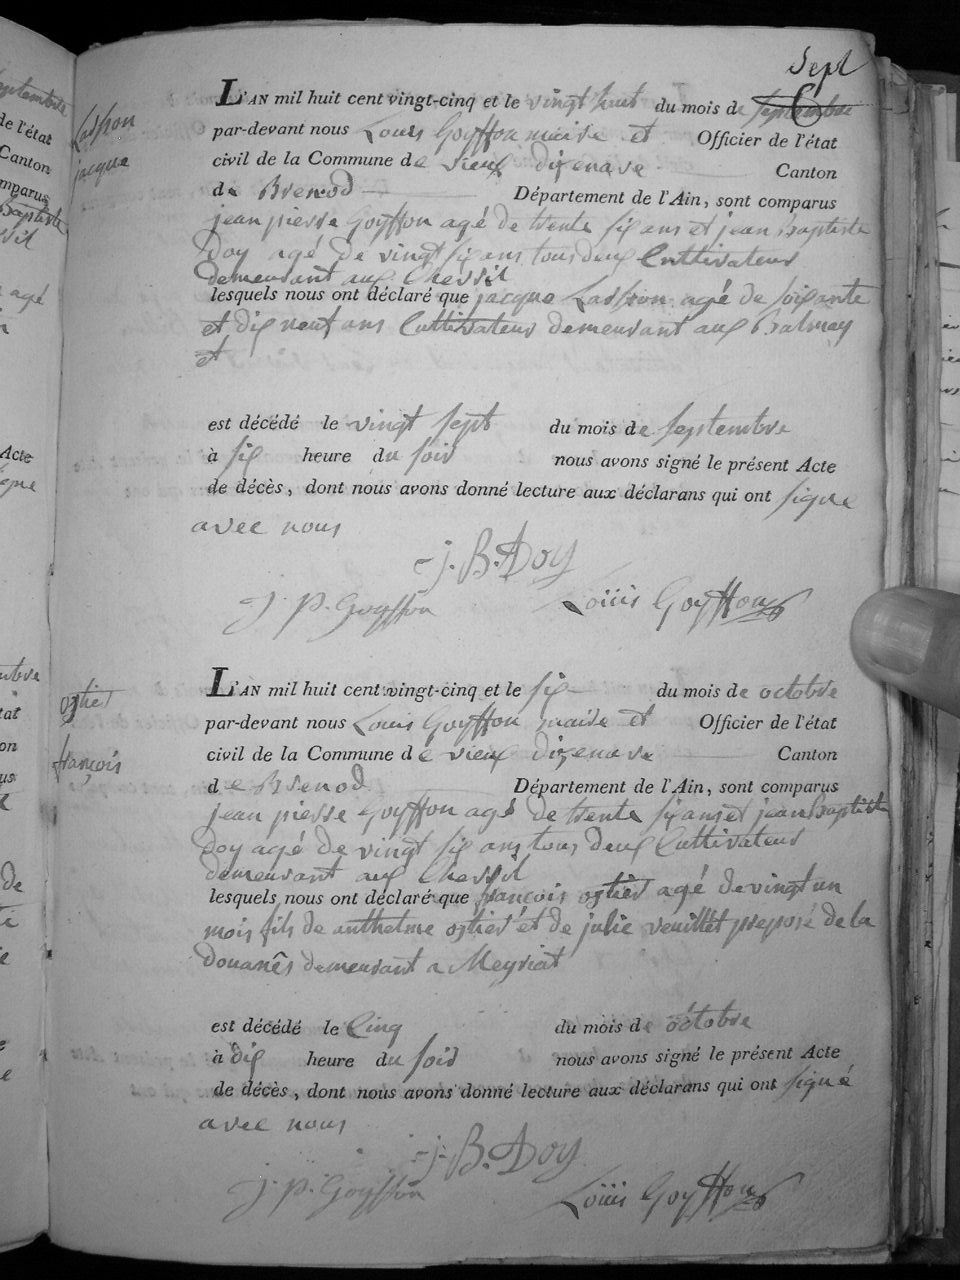 Sept
Lasson
jacque
L'AN mil huit cent vingt-cinq et le vingt huit du mois de septembre
par-devant nous Louis Goyffon maire et Officier de l'état
civil de la Commune de vieux dizenave Canton
de Brenod Département de l'Ain, sont comparus
jean pierre Goyffon agé de trente six ans et jean Baptiste
Doy agé de vingt six ans tous deux Cultivateurs
demeurant aux Chessil
lesquels nous ont déclaré que jacque Lasson agé de soixante
et dix neuf ans Cultivateur demeurant aux Balmay
et
est décédé le vingt sept du mois de septembre
à six heure du soir nous avons signé le présent Acte
de décès, dont nous avons donné lecture aux déclarans qui ont signe
avec nous
J. B. Doy
J. P. Goyffon Louis Goyffon
ostier
françois
L'AN mil huit cent vingt-cinq et le six du mois de octobre
par-devant nous Louis Goyffon maire et Officier de l'état
civil de la Commune de vieux dizenave Canton
de Brenod Département de l'Ain, sont comparus
jean pierre Goyffon agé de trente six ans et jean Baptiste
Doy agé de vingt six ans tous deux Cultivateurs
demeurant aux Chessil
lesquels nous ont déclaré que françois ostier agé de vingt un
mois fils de anthelme ostier et de julie veuillet preposé de la
Douanês demeurant a Meyriat
est décédé le Cinq du mois de octobre
à dix heure du soir nous avons signé le présent Acte
de décès, dont nous avons donné lecture aux déclarans qui ont signé
avec nous
J. B. Doy
J. P. Goyffon Louis Goyffon